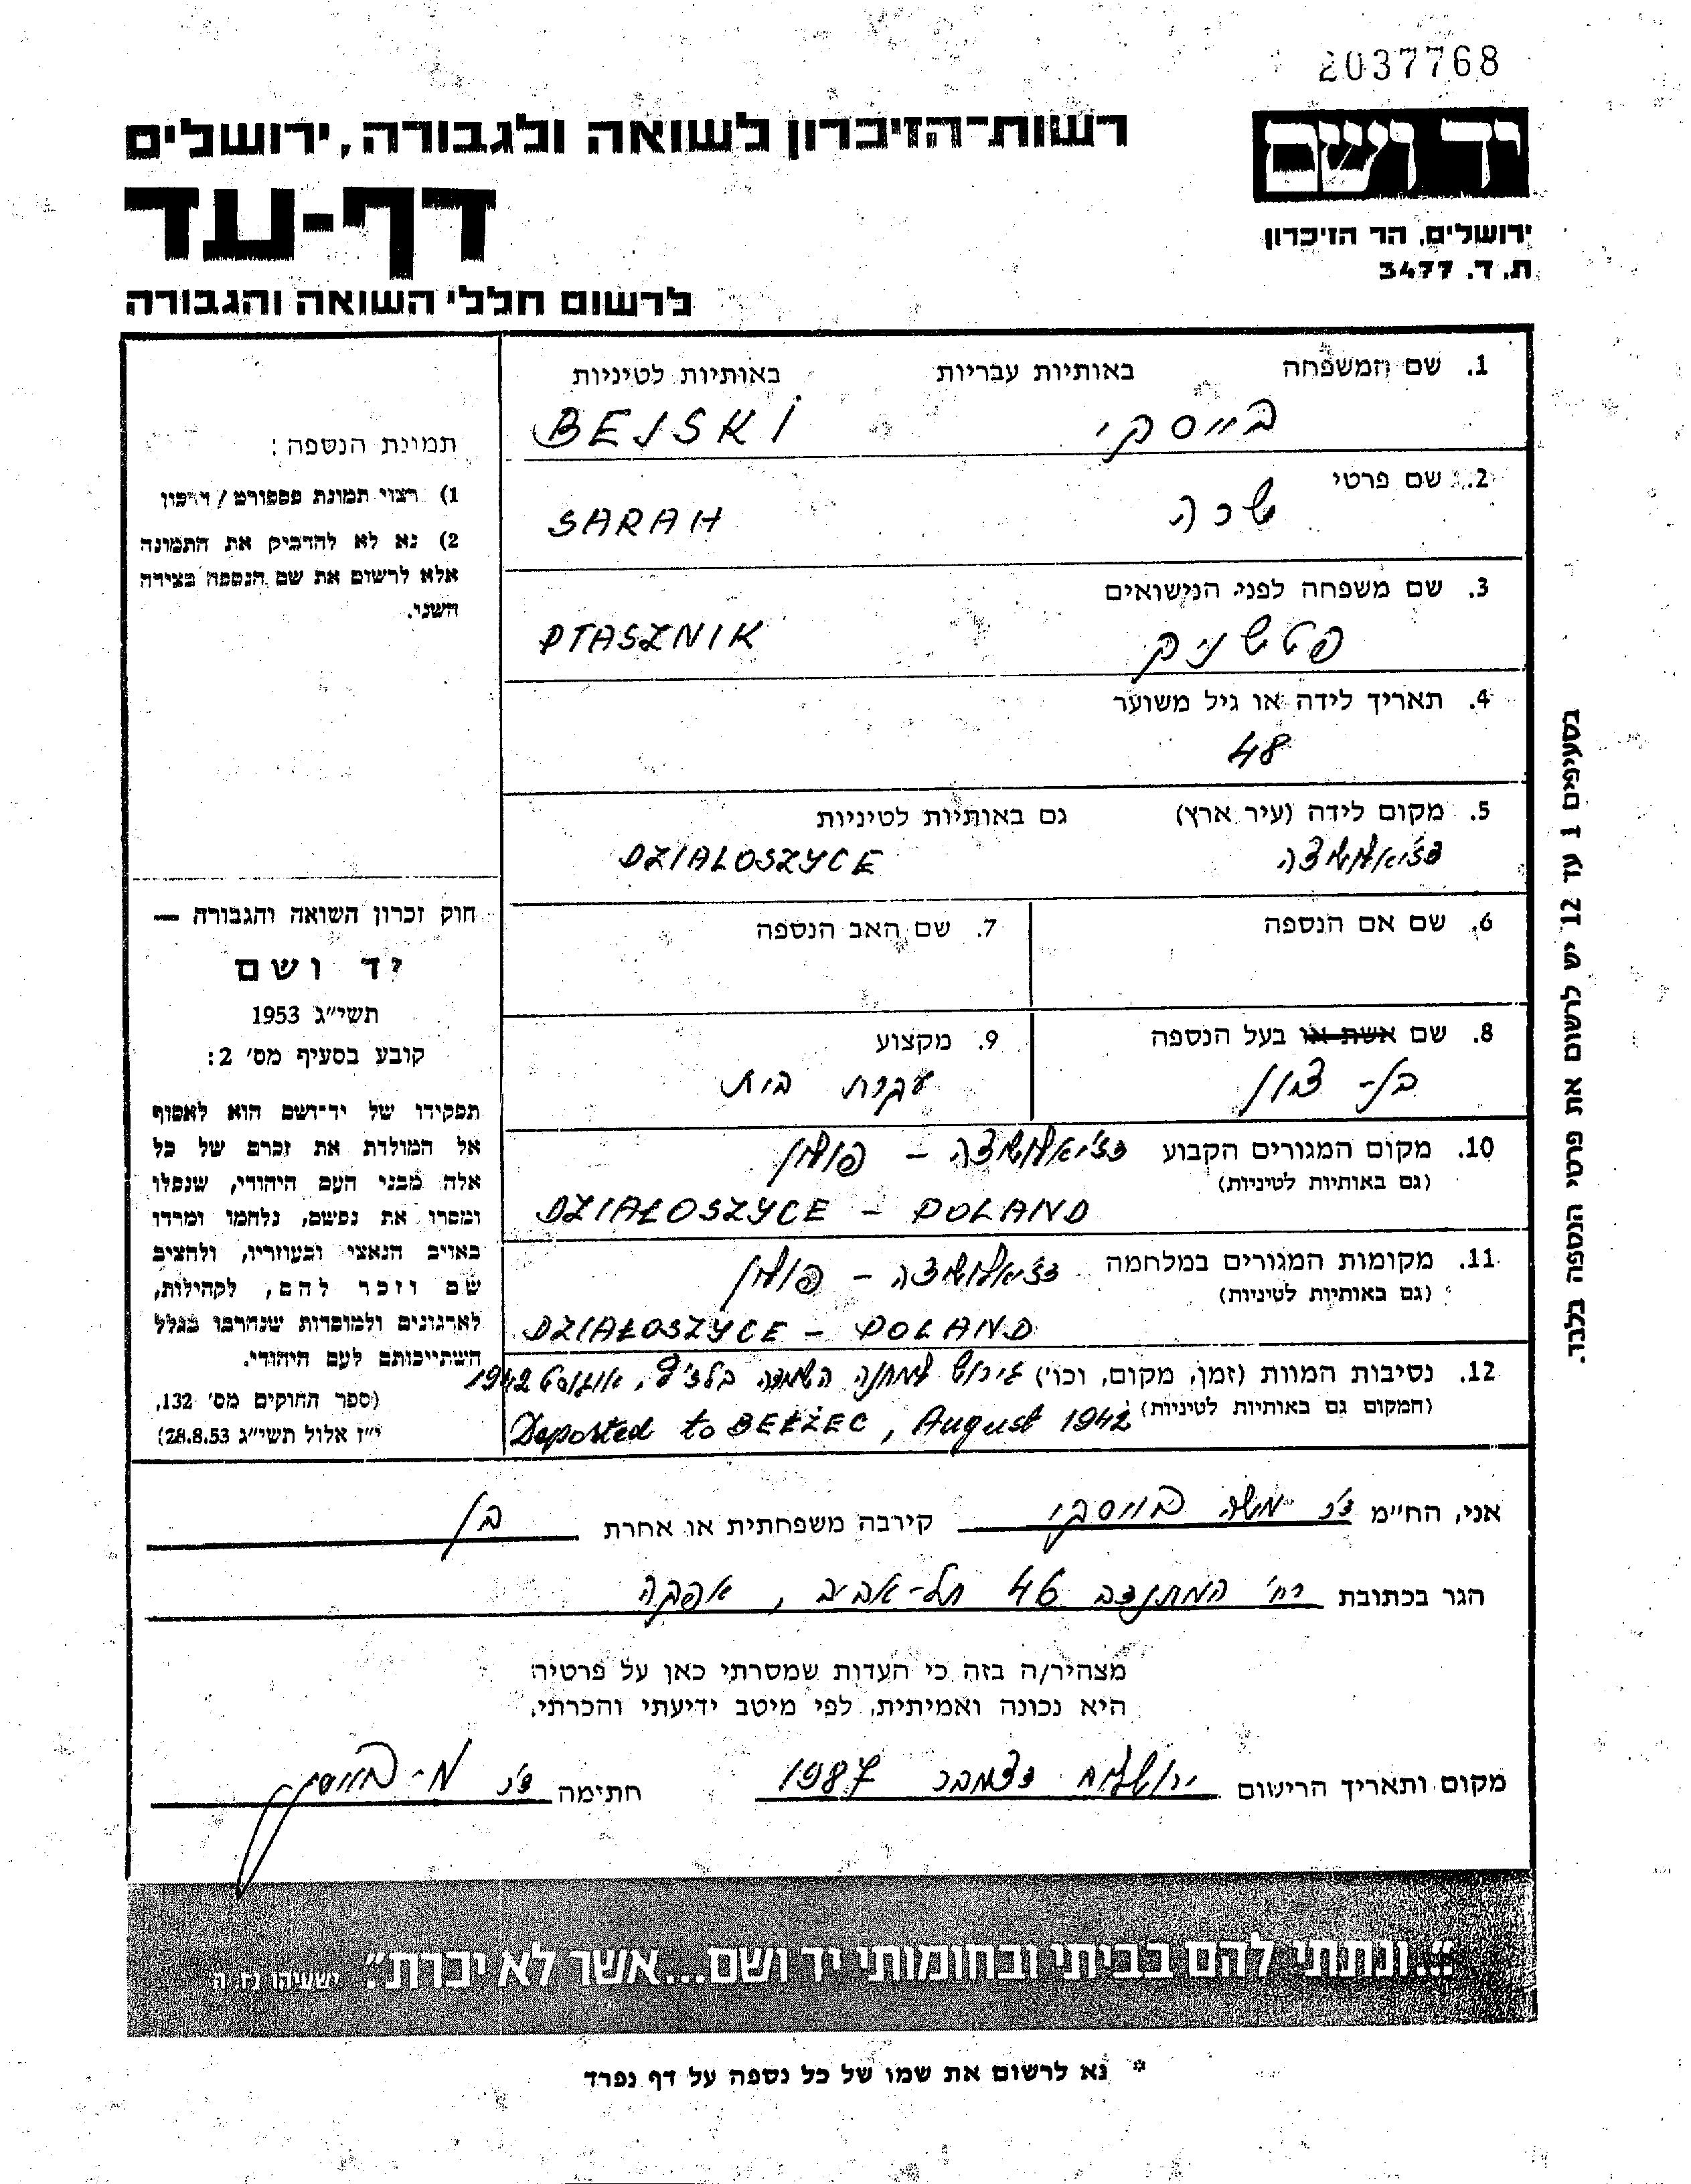 2037768
יד ושם
ירושלים, הר הזיכרון
ת.ד. 3477
רשות-הזיכרון לשואה ולגבורה, ירושלים
דף-עד
לרשום חללי השואה והגבורה
1. שם המשפחה באותיות עבריות באותיות לטיניות
בייסקי BEJSKI
2. שם פרטי
שרה SARAH
3. שם משפחה לפני הנישואים
פטשניק PTASZNIK
4. תאריך לידה או גיל משוער
48
5. מקום לידה (עיר ארץ) גם באותיות לטיניות
דז'יאלושיצה DZIAŁOSZYCE
6. שם אם הנספה 7. שם האב הנספה
8. שם אשת או בעל הנספה 9. מקצוע
בן-ציון עקרת בית
10. מקום המגורים הקבוע דז'יאלושיצה - פולין
(גם באותיות לטיניות)
DZIAŁOSZYCE - POLAND
11. מקומות המגורים במלחמה דז'יאלושיצה - פולין
(גם באותיות לטיניות)
DZIAŁOSZYCE - POLAND
12. נסיבות המוות (זמן, מקום, וכו') גירוש למחנה השמדה בלז'ץ, אוגוסט 1942
(המקום גם באותיות לטיניות) Deported to BEŁŻEC, August 1942
תמונת הנספה:
1) רצוי תמונת פספורט / דרכון
2) נא לא להדביק את התמונה
אלא לרשום את שם הנספה בצידה
השני.
חוק זכרון השואה והגבורה —
יד ושם
תשי"ג 1953
קובע בסעיף מס' 2:
תפקידו של יד-ושם הוא לאסוף
אל המולדת את זכרם של כל
אלה מבני העם היהודי, שנפלו
ומסרו את נפשם, נלחמו ומרדו
באויב הנאצי ובעוזריו, ולהציב
שם וזכר להם, לקהילות,
לארגונים ולמוסדות שנחרבו בגלל
השתייכותם לעם היהודי.
(ספר החוקים מס' 132,
י"ז אלול תשי"ג 28.8.53)
בסעיפים 1 עד 12 יש לרשום את פרטי הנספה בלבד.
אני, הח"מ ד"ר משה בייסקי קירבה משפחתית או אחרת בן
הגר בכתובת רח' המתנדב 46 תל-אביב, אפקה
מצהיר/ה בזה כי העדות שמסרתי כאן על פרטיה
היא נכונה ואמיתית, לפי מיטב ידיעתי והכרתי.
מקום ותאריך הרישום ירושלים דצמבר 1987 חתימה ד"ר מ. בייסקי
"...ונתתי להם בביתי ובחומותי יד ושם...אשר לא יכרת". ישעיהו נו, ה
* נא לרשום את שמו של כל נספה על דף נפרד